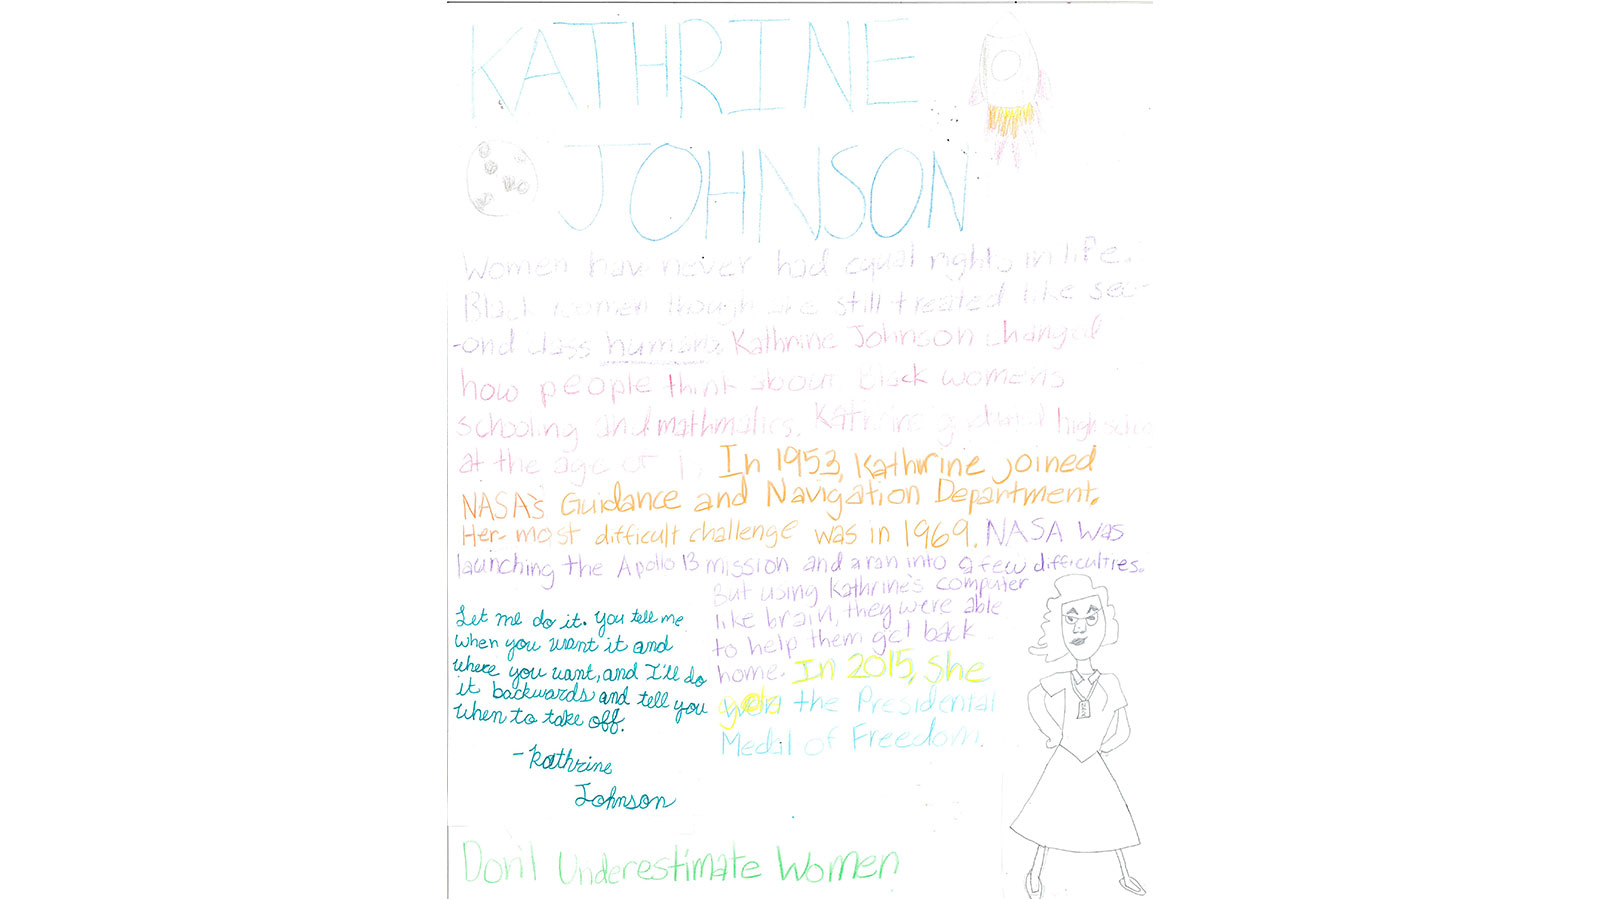 KATHRINE
JOHNSON
Women have never had equal rights in life.
Black women though are still treated like sec-
-ond class humans. Kathrine Johnson changed
how people think about Black womens
schooling and mathmatics. Kathrine graduated high
at the age of
In 1953, Kathrine joined
NASA's Guidance and Navigation Department.
Her most difficult challenge was in 1969. NASA was
launching the Apollo 13 mission and a ran into a few difficulties.
But using Kathrine's computer
like brain, they were able
to help them get back
home. In 2015, she
the Presidental
Medal of Freedom.
Let me do it. You tell me
when you want it and
where you want, and I'll do
it backwards and tell you
when to take off.
-Kathrine
Johnson
Don't Underestimate Women